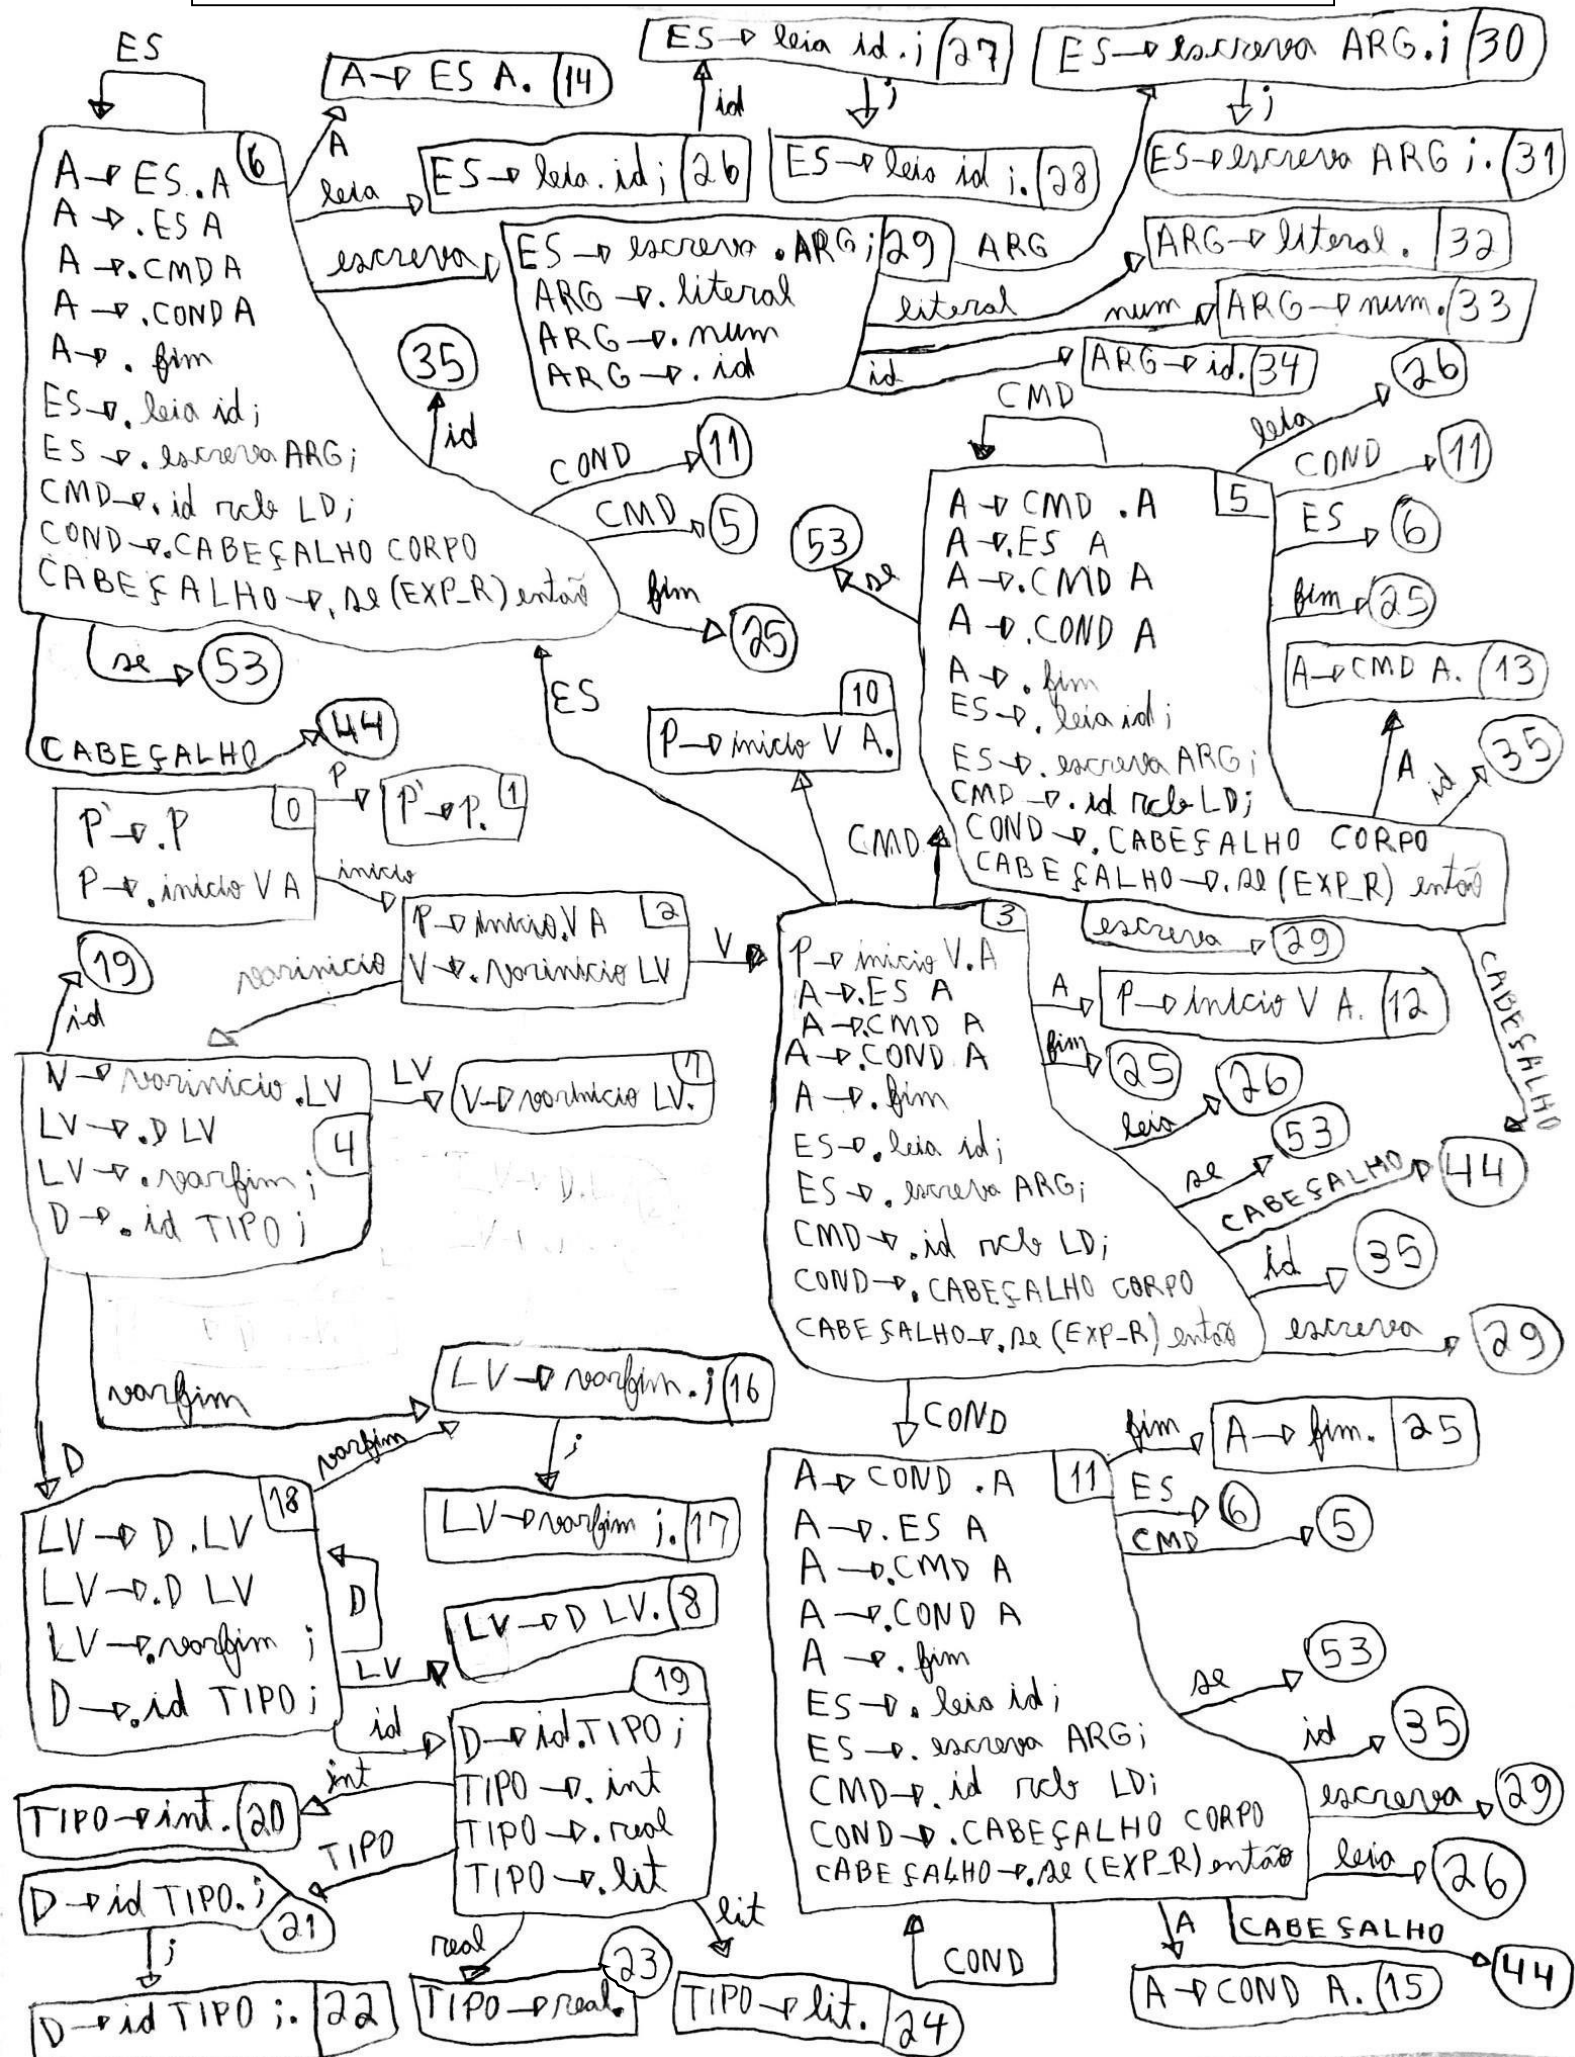 ES
A→ES A. 14
ES→leia id.; 27
ES→escreva ARG.; 30
A
id
;
;
A→ES.A 6
A→.ES A
A→.CMD A
A→.COND A
A→. fim
ES→. leia id;
ES→. escreva ARG;
CMD→. id rcb LD;
COND→.CABEÇALHO CORPO
CABEÇALHO→. se (EXP_R) então
leia
ES→leia. id; 26
ES→leia id ;. 28
ES→escreva ARG ;. 31
escreva
ES→escreva .ARG; 29
ARG→. literal
ARG→. num
ARG→. id
ARG
literal
ARG→literal. 32
num
ARG→num. 33
id
ARG→id. 34
35
id
COND
11
CMD
5
fim
25
se
53
CABEÇALHO
44
CMD
leia
26
COND
11
ES
6
fim
25
A→CMD .A 5
A→.ES A
A→.CMD A
A→.COND A
A→. fim
ES→. leia id;
ES→. escreva ARG;
CMD→. id rcb LD;
COND→. CABEÇALHO CORPO
CABEÇALHO→. se (EXP_R) então
53
se
A→CMD A. 13
A
id
35
escreva
29
CABEÇALHO
ES
10
P→inicio V A.
CMD
P'→.P 0
P→.inicio V A
P
P'→P. 1
inicio
P→inicio.V A 2
V→. varinicio LV
V
19
id
varinicio
P→inicio V.A 3
A→.ES A
A→.CMD A
A→.COND A
A→. fim
ES→. leia id;
ES→. escreva ARG;
CMD→. id rcb LD;
COND→. CABEÇALHO CORPO
CABEÇALHO→. se (EXP_R) então
A
P→inicio V A. 12
fim
25
leia
26
se
53
CABEÇALHO
44
id
35
escreva
29
V→varinicio .LV
LV→.D LV
LV→. varfim ;
D→. id TIPO ;
4
LV
V→varinicio LV. 7
varfim
LV→varfim. ; 16
varfim
;
LV→varfim ;. 17
D
LV→D .LV 18
LV→.D LV
LV→.varfim ;
D→.id TIPO ;
D
LV
LV→D LV. 8
id
19
D→id.TIPO ;
TIPO→. int
TIPO→. real
TIPO→. lit
int
TIPO→int. 20
TIPO
D→id TIPO. ; 21
;
D→id TIPO ;. 22
real
TIPO→real. 23
lit
TIPO→lit. 24
COND
A→COND .A 11
A→. ES A
A→.CMD A
A→.COND A
A→. fim
ES→. leia id;
ES→. escreva ARG;
CMD→. id rcb LD;
COND→. CABEÇALHO CORPO
CABEÇALHO→. se (EXP_R) então
fim
A→fim. 25
ES
6
CMD
5
se
53
id
35
escreva
29
leia
26
COND
A
A→COND A. 15
CABEÇALHO
44